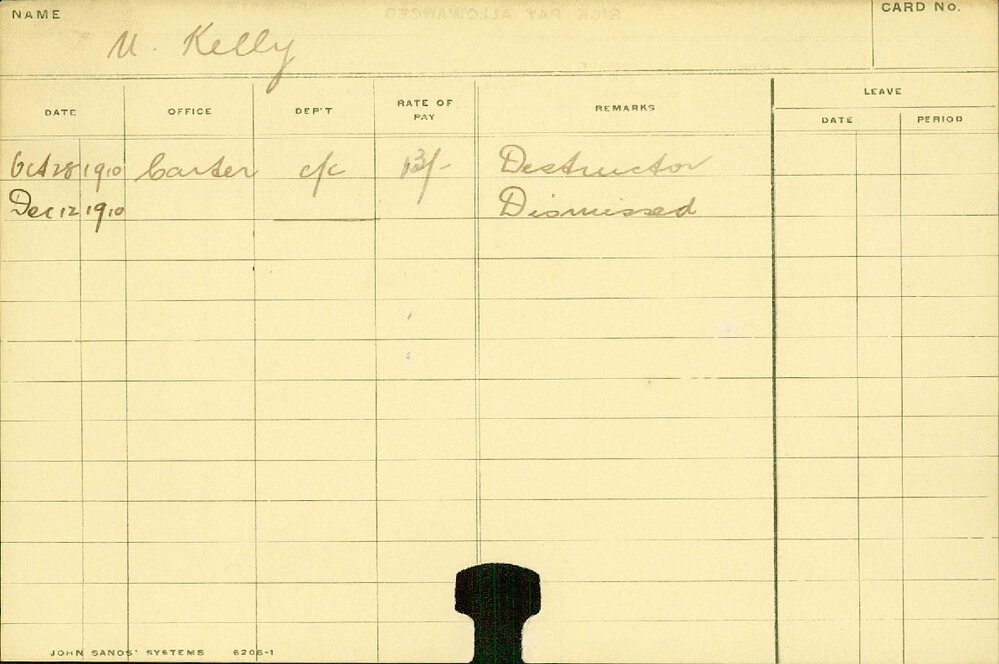 NAME
CARD No.
U. Kelly
DATE OFFICE DEP'T RATE OF PAY REMARKS LEAVE
DATE PERIOD
Oct 28 1910 Carter c/c 13/- Destructor
Dec 12 1910 Dismissed
JOHN SANDS' SYSTEMS 6206-1